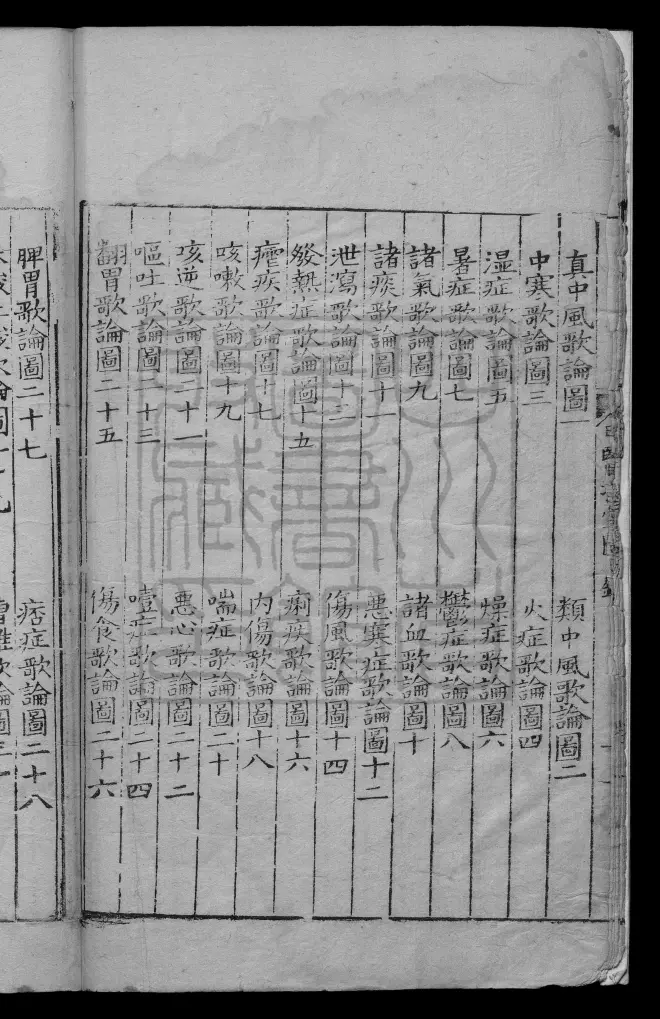 真中風歌論圖一　類中風歌論圖二
中寒歌論圖三　火症歌論圖四
湿症歌論圖五　燥症歌論圖六
暑症歌論圖七　鬱症歌論圖八
諸氣歌論圖九　諸血歌論圖十
諸痰歌論圖十一　惡寒症歌論圖十二
泄瀉歌論圖十三　傷風歌論圖十四
發熱症歌論圖十五　痢疾歌論圖十六
瘧疾歌論圖十七　內傷歌論圖十八
咳嗽歌論圖十九　喘症歌論圖二十
咳逆歌論圖二十一　惡心歌論圖二十二
嘔吐歌論圖二十三　噎症歌論圖二十四
翻胃歌論圖二十五　傷食歌論圖二十六
脾胃歌論圖二十七　痞症歌論圖二十八